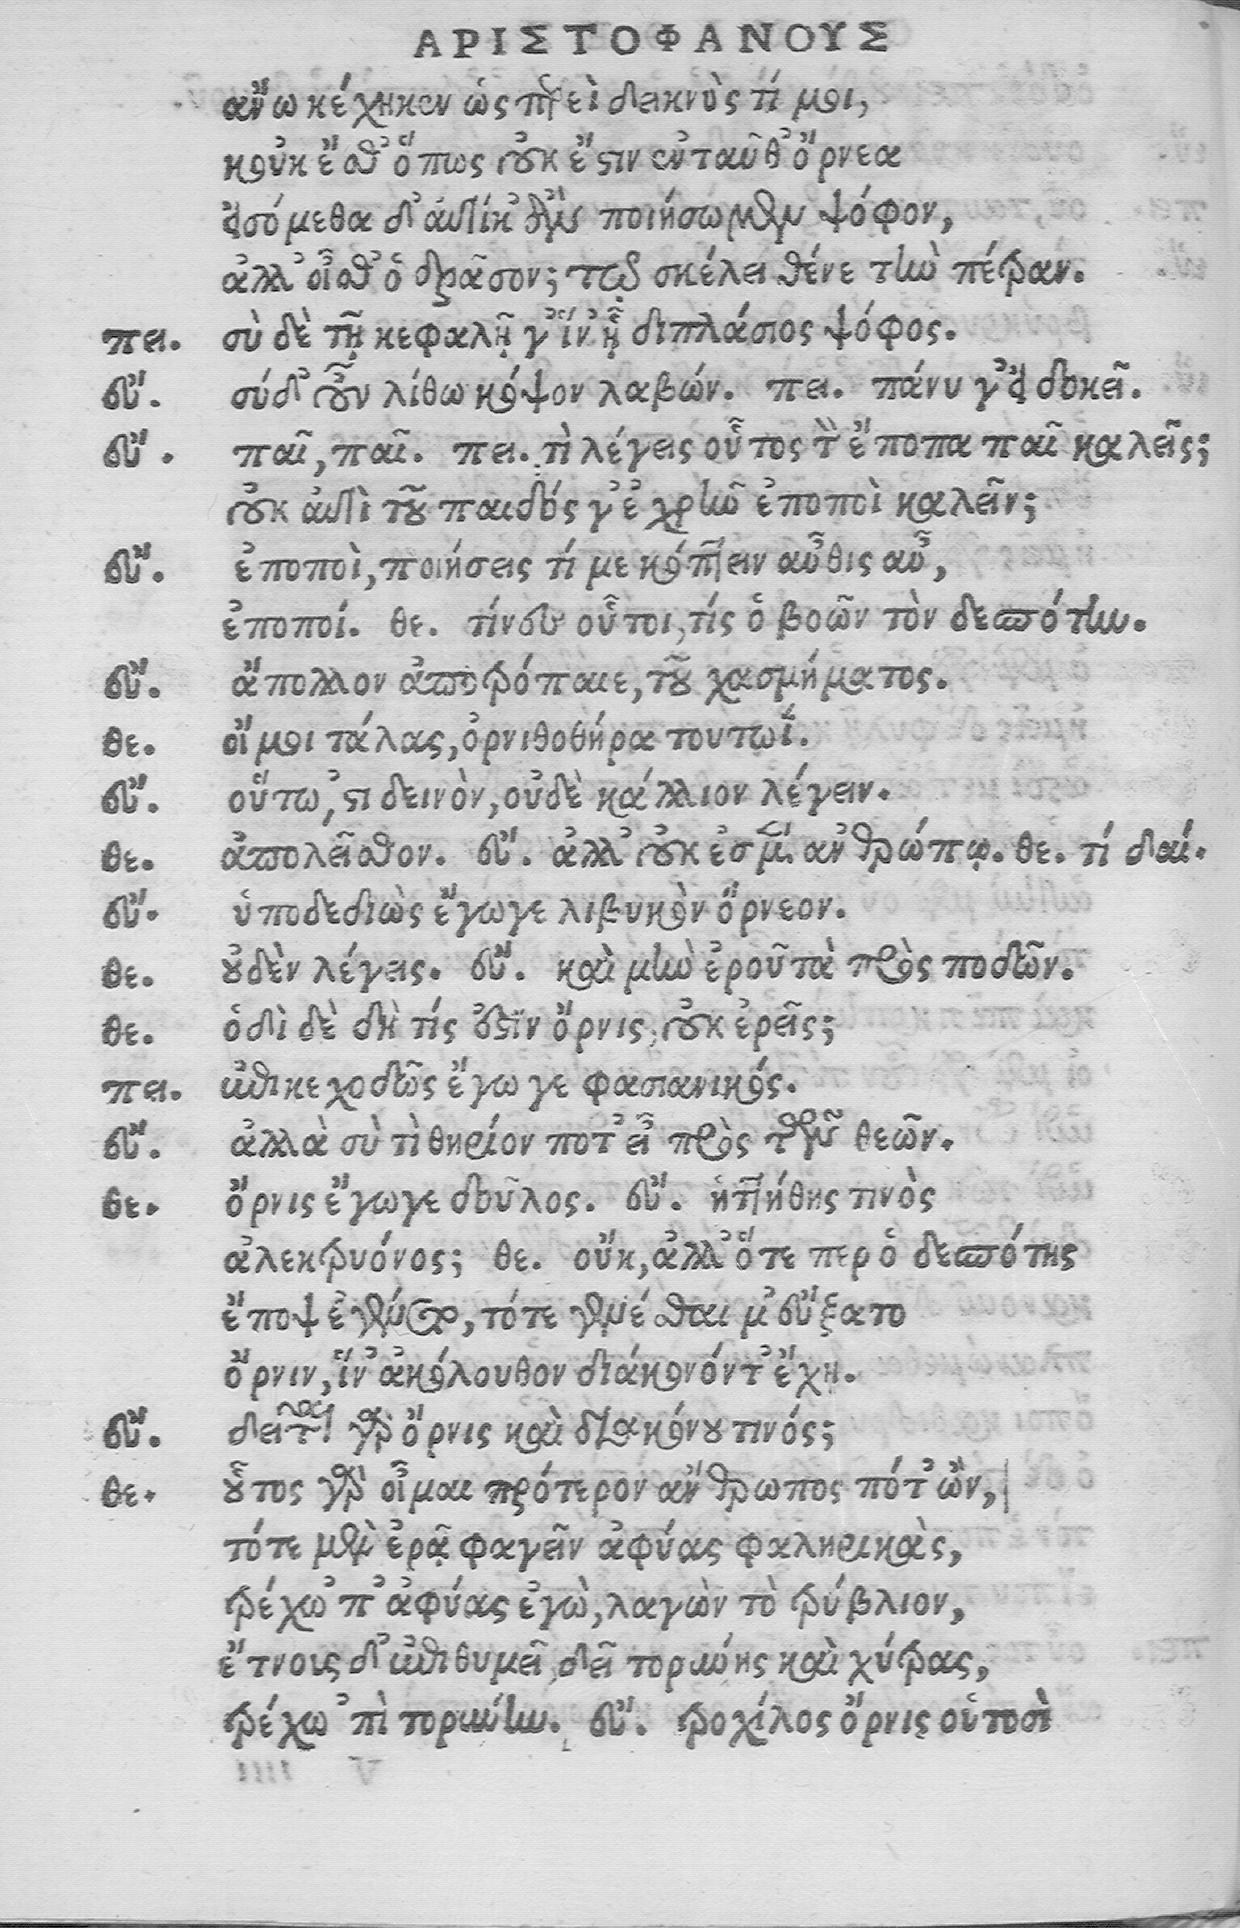 ΑΡΙΣΤΟΦΑΝΟΥΣ
ἄνω κέχηκεν ὡς περεὶ δεικνὺς τί μοι,
κοὐκ ἔσθ' ὅπως οὐκ ἔστιν ἐνταῦθ' ὄρνεα
εἰσόμεθα δ' αὐτίκ' ἢν ποιήσωμεν ψόφον,
ἀλλ' οἶσθ' ὃ δρᾶσον; τῷ σκέλει θένε τὴν πέτραν.
πει. σὺ δὲ τῇ κεφαλῇ γ' ἵν' ᾖ διπλάσιος ψόφος.
ευ. σύ δ' οὖν λίθω κόψον λαβών. πει. πάνυ γ' εἰ δοκεῖ.
ευ. παῖ, παῖ. πει. τὶ λέγεις οὗτος τὸν ἔποπα παῖ καλεῖς;
οὐκ ἀντὶ τοῦ παιδός γ' ἐχρῆν ἐποποὶ καλεῖν;
ευ. ἐποποὶ, ποιήσεις τί με κόπτειν αὖθις αὖ,
ἐποποί. θε. τίνες οὗτοι, τίς ὁ βοῶν τὸν δεσπότην.
ευ. ἄπολλον ἀποτρόπαιε, τοῦ χασμήματος.
θε. οἴμοι τάλας, ὀρνιθοθήρα τουτωί.
ευ. οὕτω, 'στι δεινὸν, οὐδὲ κάλλιον λέγειν.
θε. ἀπολεῖσθον. ευ. ἀλλ' οὐκ ἐσμὲν ἀνθρώπω. θε. τί δαί.
ευ. ὑποδεδιὼς ἔγωγε λιβυκὸν ὄρνεον.
θε. οὐδὲν λέγεις. ευ. καὶ μὴν ἐροῦ τὰ πρὸς ποδῶν.
θε. ὁδὶ δὲ δὴ τίς ἐστὶν ὄρνις, οὐκ ἐρεῖς;
πει. ἐπικεχοδῶς ἔγωγε φασιανικός.
ευ. ἀλλὰ σὺ τὶ θηρίον ποτ' εἶ πρὸς τῶν θεῶν.
θε. ὄρνις ἔγωγε δοῦλος. ευ. ἡττήθης τινὸς
ἀλεκτρυόνος; θε. οὔκ, ἀλλ' ὅτε περ ὁ δεσπότης
ἔποψ ἐγένετο, τότε γενέσθαι μ' εὔξατο
ὄρνιν, ἵν' ἀκόλουθον διάκονόν τ' ἔχη.
ευ. δεῖται γὰρ ὄρνις καὶ διακόνου τινός;
θε. οὗτος γὰρ οἶμαι πρότερον ἄνθρωπος πότ' ὢν,
τότε μὲν ἐρᾷ φαγεῖν ἀφύας φαληρικὰς,
τρέχω 'π' ἀφύας ἐγὼ, λαγὼν τὸ τρύβλιον,
ἔτνους δ' ἐπιθυμεῖ, δεῖ τορύνης καὶ χύτρας,
τρέχω 'πὶ τορύνην. ευ. τροχίλος ὄρνις οὑτοσὶ